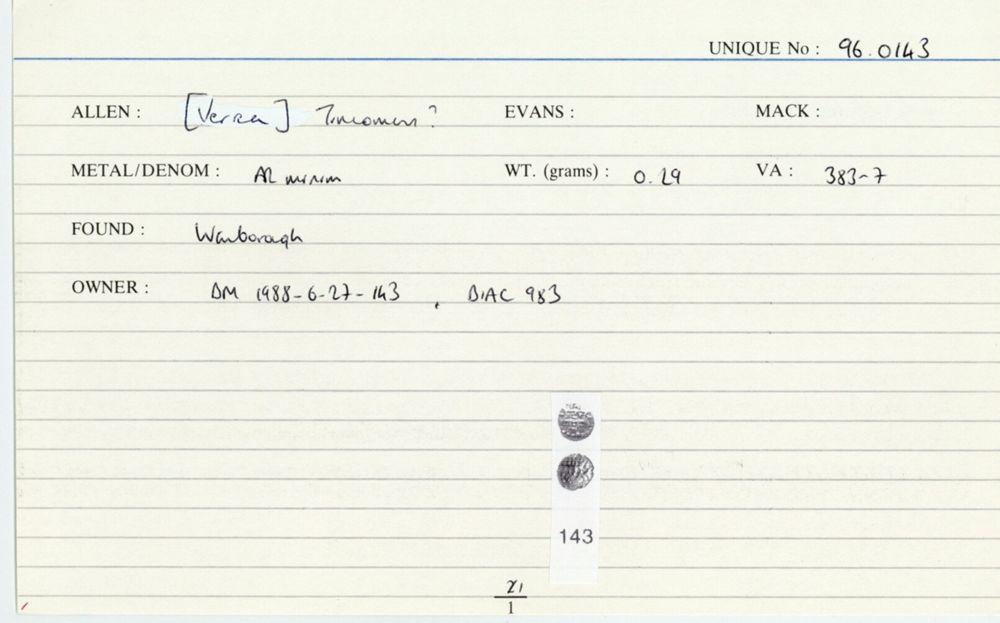 UNIQUE No : 96.0143
ALLEN : [Verica] ? EVANS : MACK :
METAL/DENOM : AR minim WT. (grams) : 0.29 VA : 383-7
FOUND : Wanborough
OWNER : BM 1988-6-27-143 , BIAC 983
143
x1
1